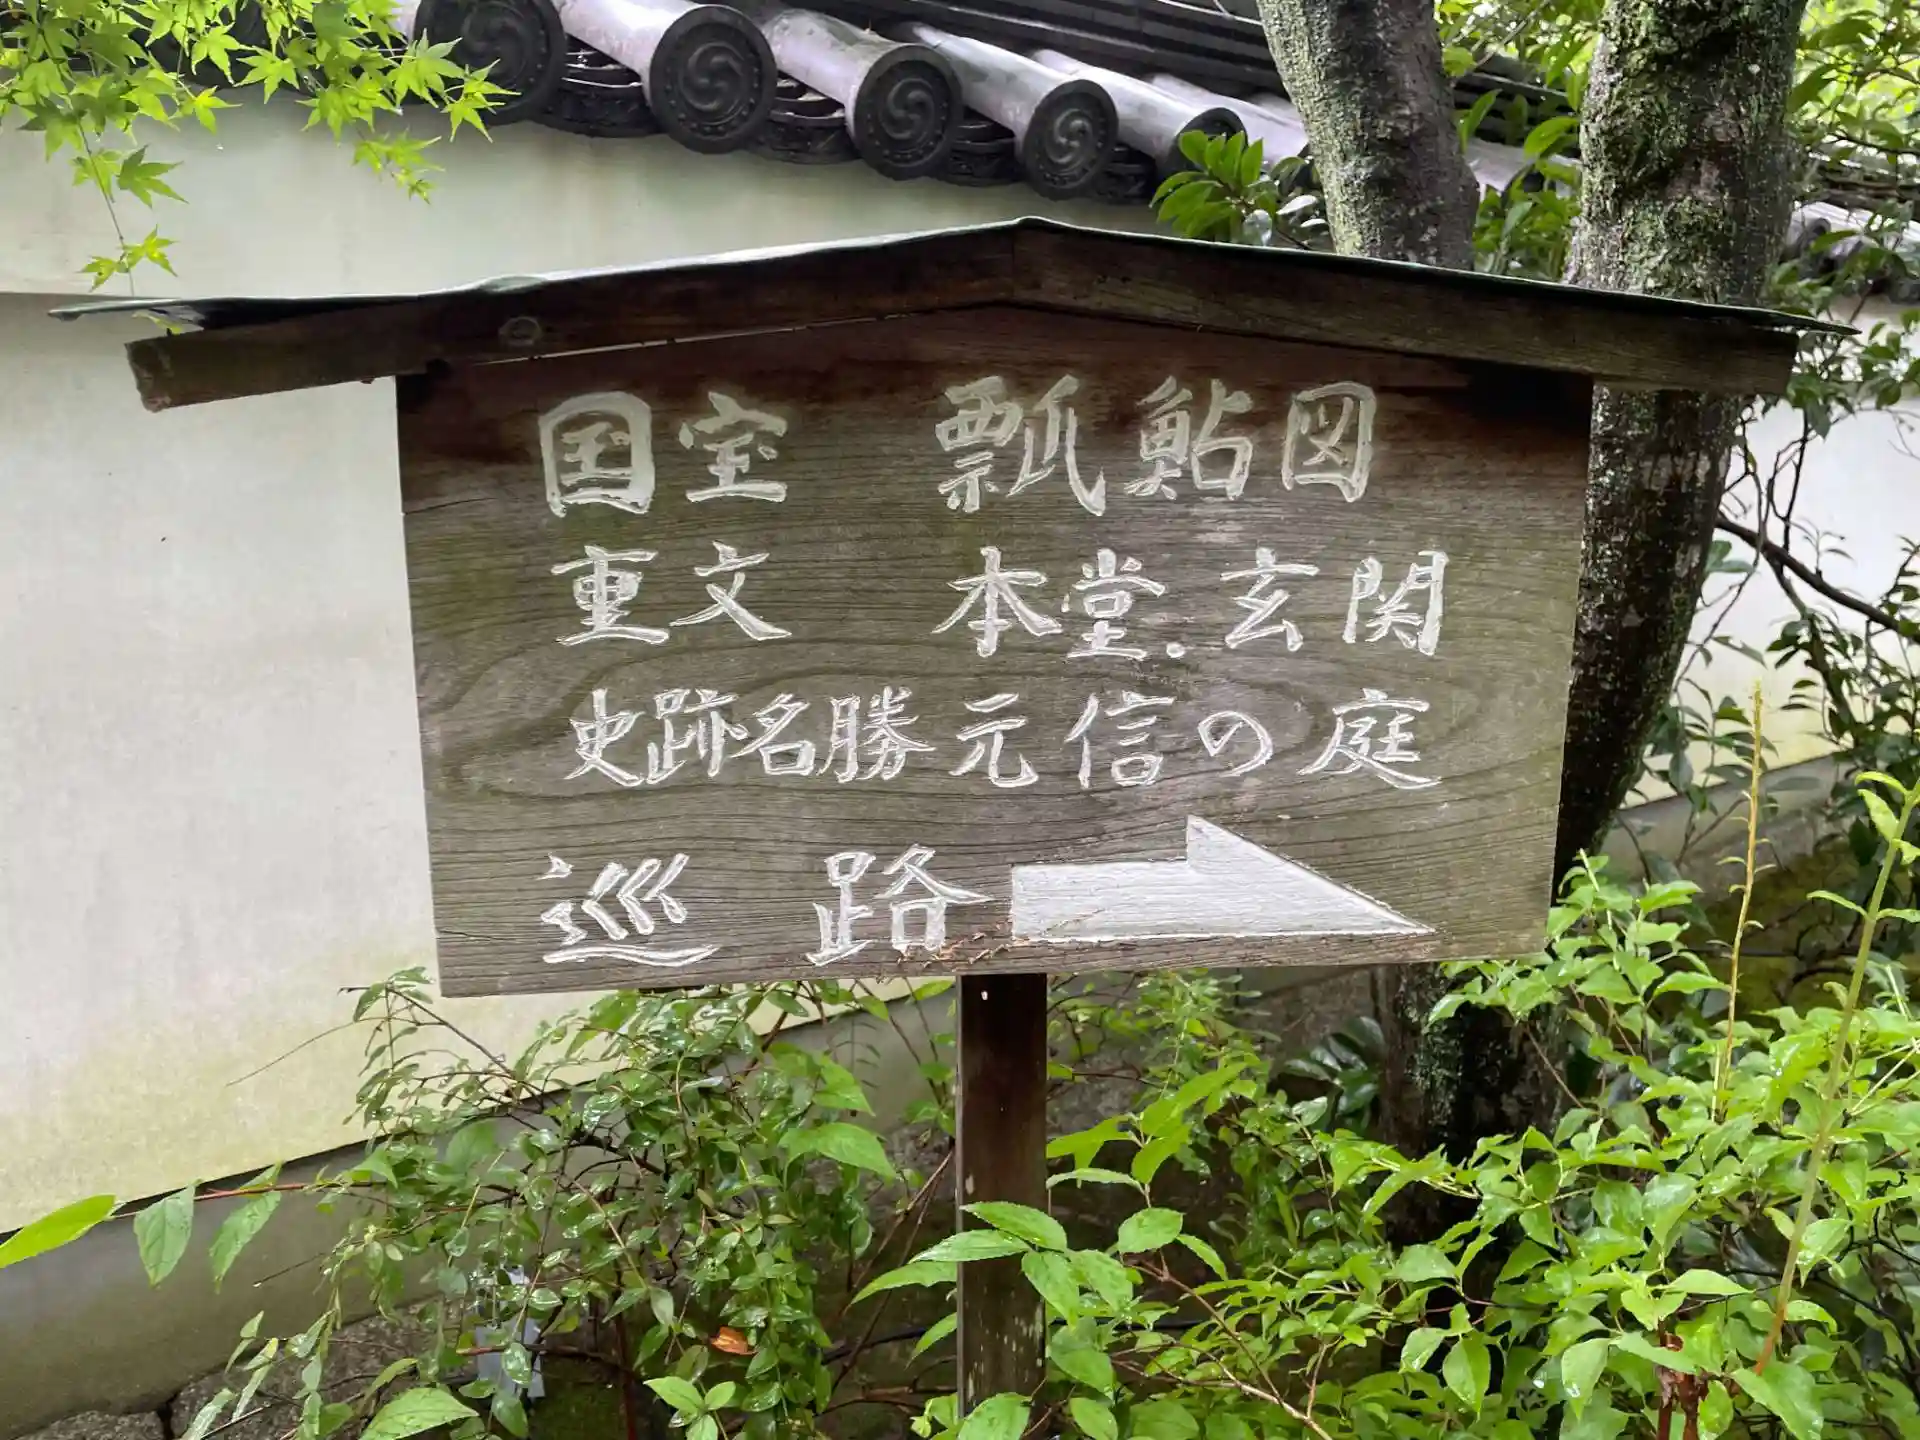 国宝 瓢鮎図
重文 本堂.玄関
史跡名勝元信の庭
巡路